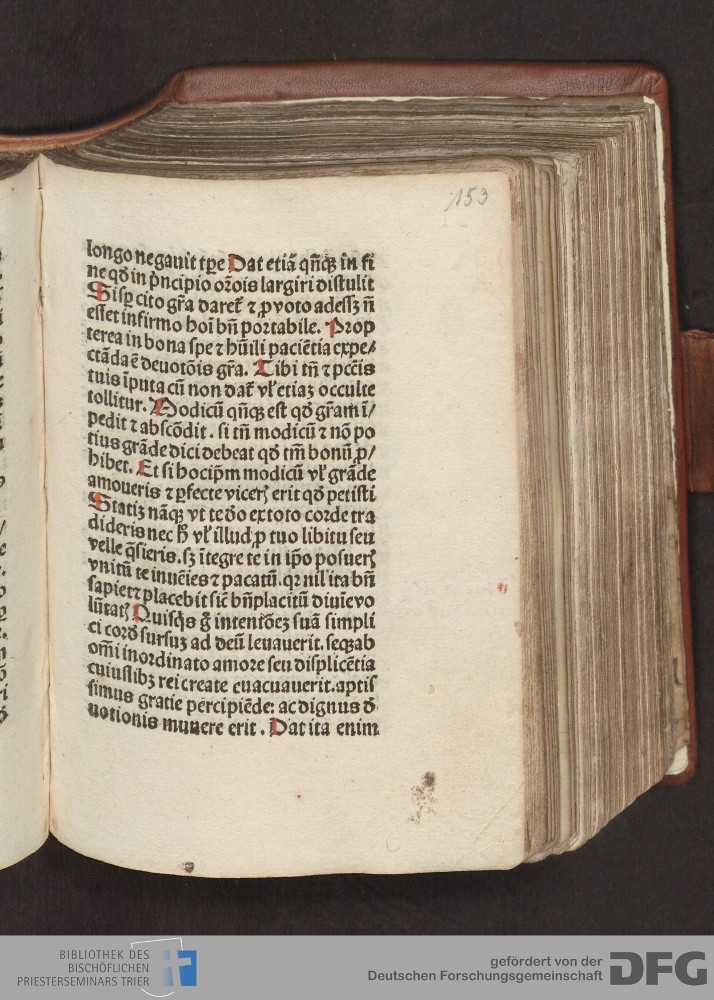 153
longo negauit tp̄e Dat etiā qn̄qꝫ in fi
ne qđ in p̄ncipio or̄ois largiri distulit
Si sꝑ cito gr̄a daret̄ ⁊ ꝓ voto adessꝫ n̄
esset infirmo hoi bn̄ portabile. Prop
terea in bona spe ⁊ hūili paciētia expe/
ctāda ē deuotōis gr̄a. Tibi tn̄ ⁊ pctis
tuis īputa cū non dat̄ vł etiaꝫ occulte
tollitur. Modicū qn̄qꝫ est qđ gr̄am ī/
pedit ⁊ abscōdit. si tn̄ modicū ⁊ nō po
tius grāde dici debeat qđ tm̄ bonū ꝓ/
hibet. Et si hoc ip̄m modicū vł grāde
amoueris ⁊ ꝑfecte vicerꝭ erit qđ petisti
Statiꝫ nāqꝫ vt te đo ex toto corde tra
dideris nec h̄ vł illud ꝓ tuo libitu seu
velle q̄sieris. sꝫ ītegre te in ip̄o posuerꝭ
vnitū te inueies ⁊ pacatū. qꝛ nil ita bn̄
sapiet ⁊ placebit sic̄ bn̄placitū diuīe vo
lūtatꝭ Quisq̄s g̊ intentōeꝫ suā simpli
ci corđ sursuꝫ ad deū leuauerit. seqꝫ ab
om̄i inordinato amore seu displicētia
cuiuslibꝫ rei create euacuauerit. aptis
simus gratie percipiēde: ac dignus đ
uotionis munere erit. Dat ita enim
BIBLIOTHEK DES
BISCHÖFLICHEN
PRIESTERSEMINARS TRIER
gefördert von der
Deutschen Forschungsgemeinschaft
DFG